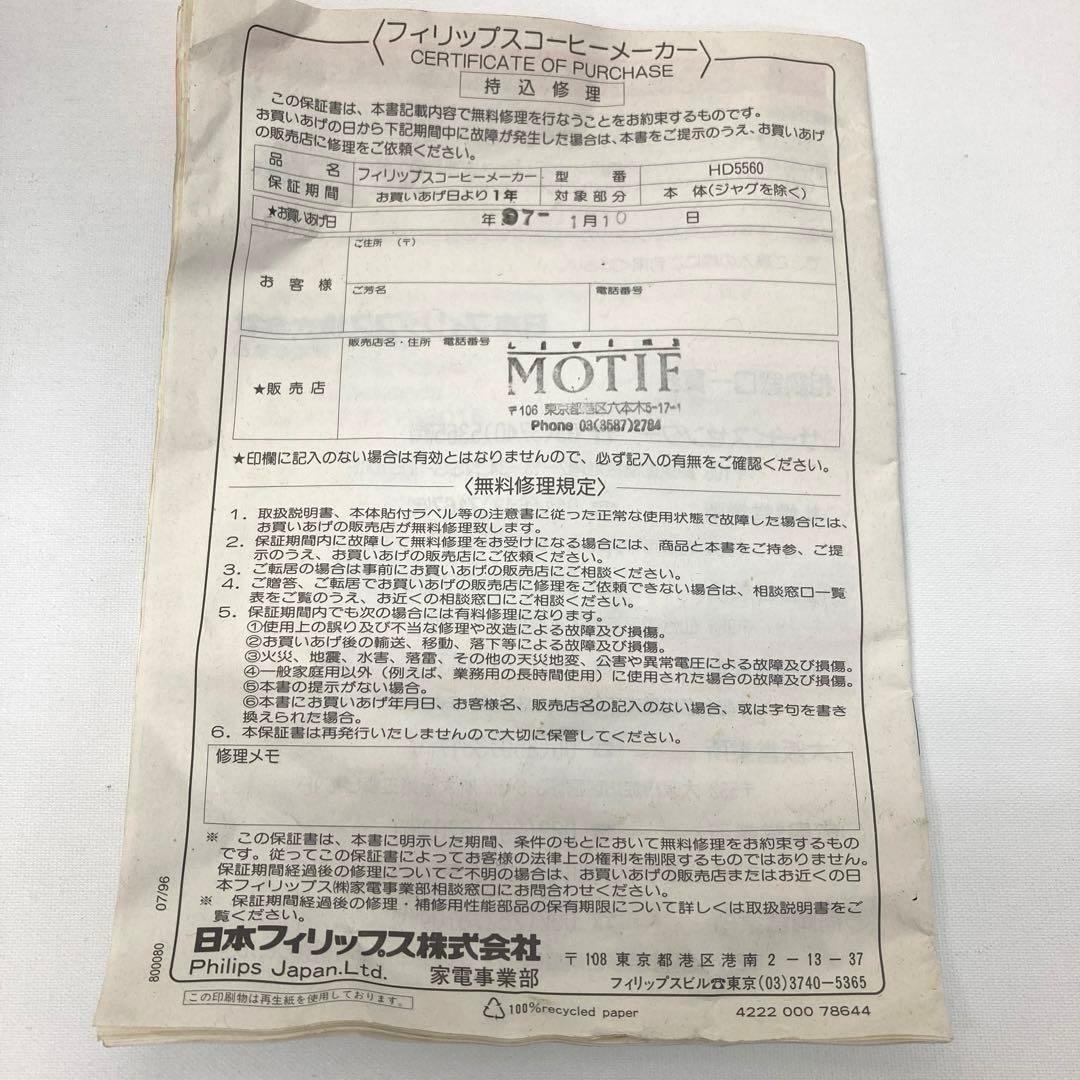 フィリップスコーヒーメーカー
CERTIFICATE OF PURCHASE
持込修理
この保証書は、本書記載内容で無料修理を行なうことをお約束するものです。
お買いあげの日から下記期間中に故障が発生した場合は、本書をご提示のうえ、お買いあげ
の販売店に修理をご依頼ください。
品名 フィリップスコーヒーメーカー 型番 HD5560
保証期間 お買いあげ日より1年 対象部分 本体(ジャグを除く)
★お買いあげ日 年 97- 1月10 日
お客様 ご住所 (〒)
ご芳名 電話番号
★販売店 販売店名・住所 電話番号
LIVING
MOTIF
〒106 東京都港区六本木5-17-1
Phone 03(3587)2784
★印欄に記入のない場合は有効とはなりませんので、必ず記入の有無をご確認ください。
〈無料修理規定〉
1. 取扱説明書、本体貼付ラベル等の注意書に従った正常な使用状態で故障した場合には、
お買いあげの販売店が無料修理致します。
2. 保証期間内に故障して無料修理をお受けになる場合には、商品と本書をご持参、ご提
示のうえ、お買いあげの販売店にご依頼ください。
3. ご転居の場合は事前にお買いあげの販売店にご相談ください。
4. ご贈答、ご転居でお買いあげの販売店に修理をご依頼できない場合は、相談窓口一覧
表をご覧のうえ、お近くの相談窓口にご相談ください。
5. 保証期間内でも次の場合には有料修理になります。
①使用上の誤り及び不当な修理や改造による故障及び損傷。
②お買いあげ後の輸送、移動、落下等による故障及び損傷。
③火災、地震、水害、落雷、その他の天災地変、公害や異常電圧による故障及び損傷。
④一般家庭用以外(例えば、業務用の長時間使用)に使用された場合の故障及び損傷。
⑤本書の提示がない場合。
⑥本書にお買いあげ年月日、お客様名、販売店名の記入のない場合、或は字句を書き
換えられた場合。
6. 本保証書は再発行いたしませんので大切に保管してください。
修理メモ
※ この保証書は、本書に明示した期間、条件のもとにおいて無料修理をお約束するもの
です。従ってこの保証書によってお客様の法律上の権利を制限するものではありません。
保証期間経過後の修理についてご不明の場合は、お買いあげの販売店またはお近くの日
本フィリップス㈱家電事業部相談窓口にお問合わせください。
※ 保証期間経過後の修理・補修用性能部品の保有期限について詳しくは取扱説明書をご
覧ください。
日本フィリップス株式会社
Philips Japan.Ltd. 家電事業部
〒108 東京都港区港南2-13-37
フィリップスビル☎東京(03)3740-5365
この印刷物は再生紙を使用しております。
100%recycled paper
4222 000 78644
800080 07/96